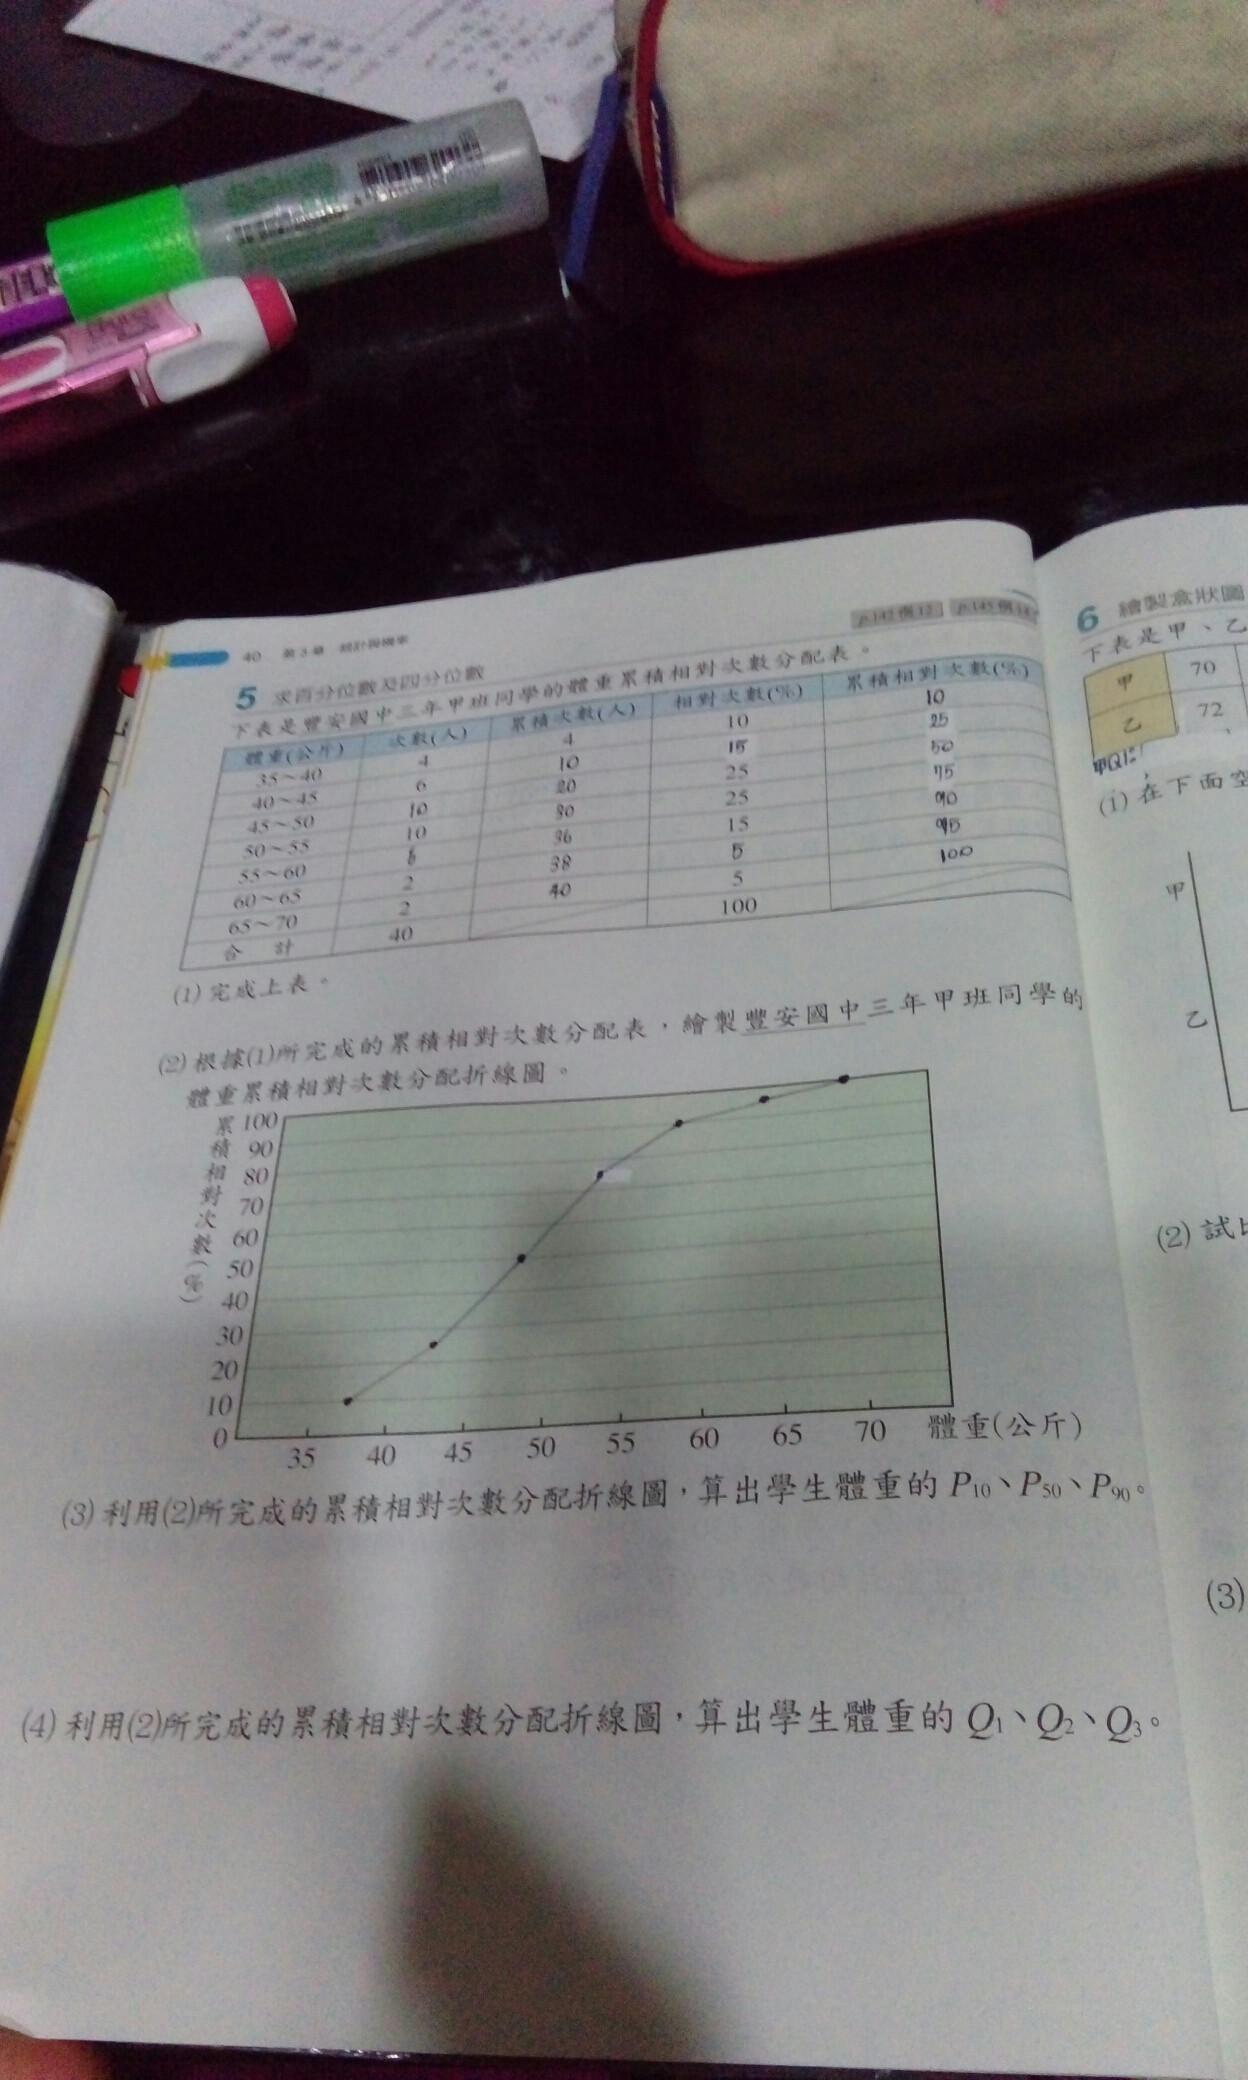 40 第3章 統計與機率
p.142例12 p.145例14
5 求百分位數及四分位數
下表是豐安國中三年甲班同學的體重累積相對次數分配表。
體重(公斤) 次數(人) 累積次數(人) 相對次數(%) 累積相對次數(%)
35～40 4 4 10 10
40～45 6 10 15 25
45～50 10 20 25 50
50～55 10 30 25 75
55～60 36 15 90
60～65 2 38 5 95
65～70 2 40 5 100
合 計 40 100
(1)完成上表。
(2)根據(1)所完成的累積相對次數分配表，繪製豐安國中三年甲班同學的
體重累積相對次數分配折線圖。
累積相對次數(%)
100
90
80
70
60
50
40
30
20
10
0
35 40 45 50 55 60 65 70 體重(公斤)
(3)利用(2)所完成的累積相對次數分配折線圖，算出學生體重的 P10、P50、P90。
(4)利用(2)所完成的累積相對次數分配折線圖，算出學生體重的 Q1、Q2、Q3。
6 繪製盒狀圖
下表是甲、乙
甲 70
乙 72
甲Q1=
(1)在下面空
甲
乙
(2)試
(3)